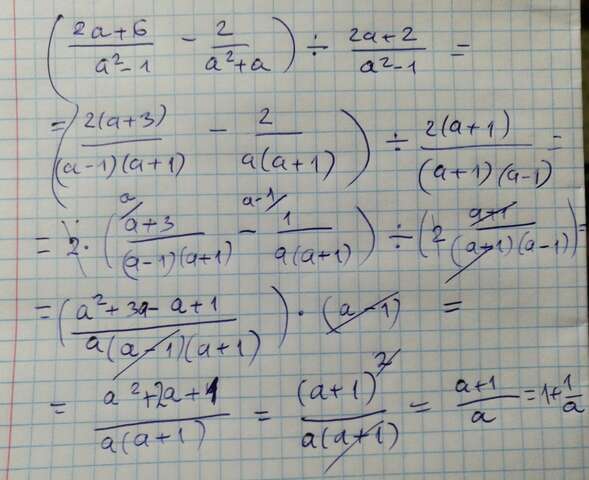 ( (2a+6)/(a²-1) - 2/(a²+a) ) ÷ (2a+2)/(a²-1) =
= ( 2(a+3)/((a-1)(a+1)) - 2/(a(a+1)) ) ÷ 2(a+1)/((a+1)(a-1)) =
= 2 · ( a/ (a+3)/((a-1)(a+1)) - a-1/ 1/(a(a+1)) ) ÷ ( 2 (a+1)/((a+1)(a-1)) ) =
= ( (a²+3a-a+1)/(a(a-1)(a+1)) ) · (a-1) =
= (a²+2a+1)/(a(a+1)) = (a+1)²/(a(a+1)) = (a+1)/a = 1+1/a